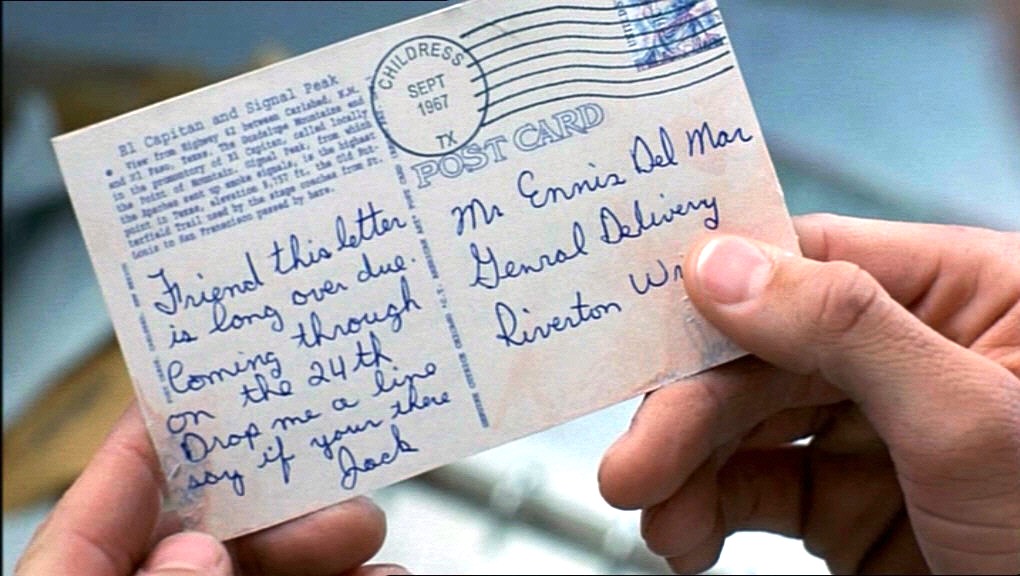 El Capitan and Signal Peak
View from Highway 62 between Carlsbad, N.M.
and El Paso, Texas. The Guadalupe Mountains and
in the promontory of El Capitan, called locally
the Point of Mountain. Signal Peak, from which
the Apaches sent up smoke signals, is the highest
point in Texas; elevation 8,757 ft. the Old But-
terfield Trail used by the stage coaches from St.
Louis to San Francisco passed by here.
Friend this letter
is long over due.
Coming through
on the 24th
Drop me a line
say if your there
Jack
CHILDRESS
SEPT
1967
TX
POST CARD
Mr Ennis Del Mar
Genral Delivery
Riverton